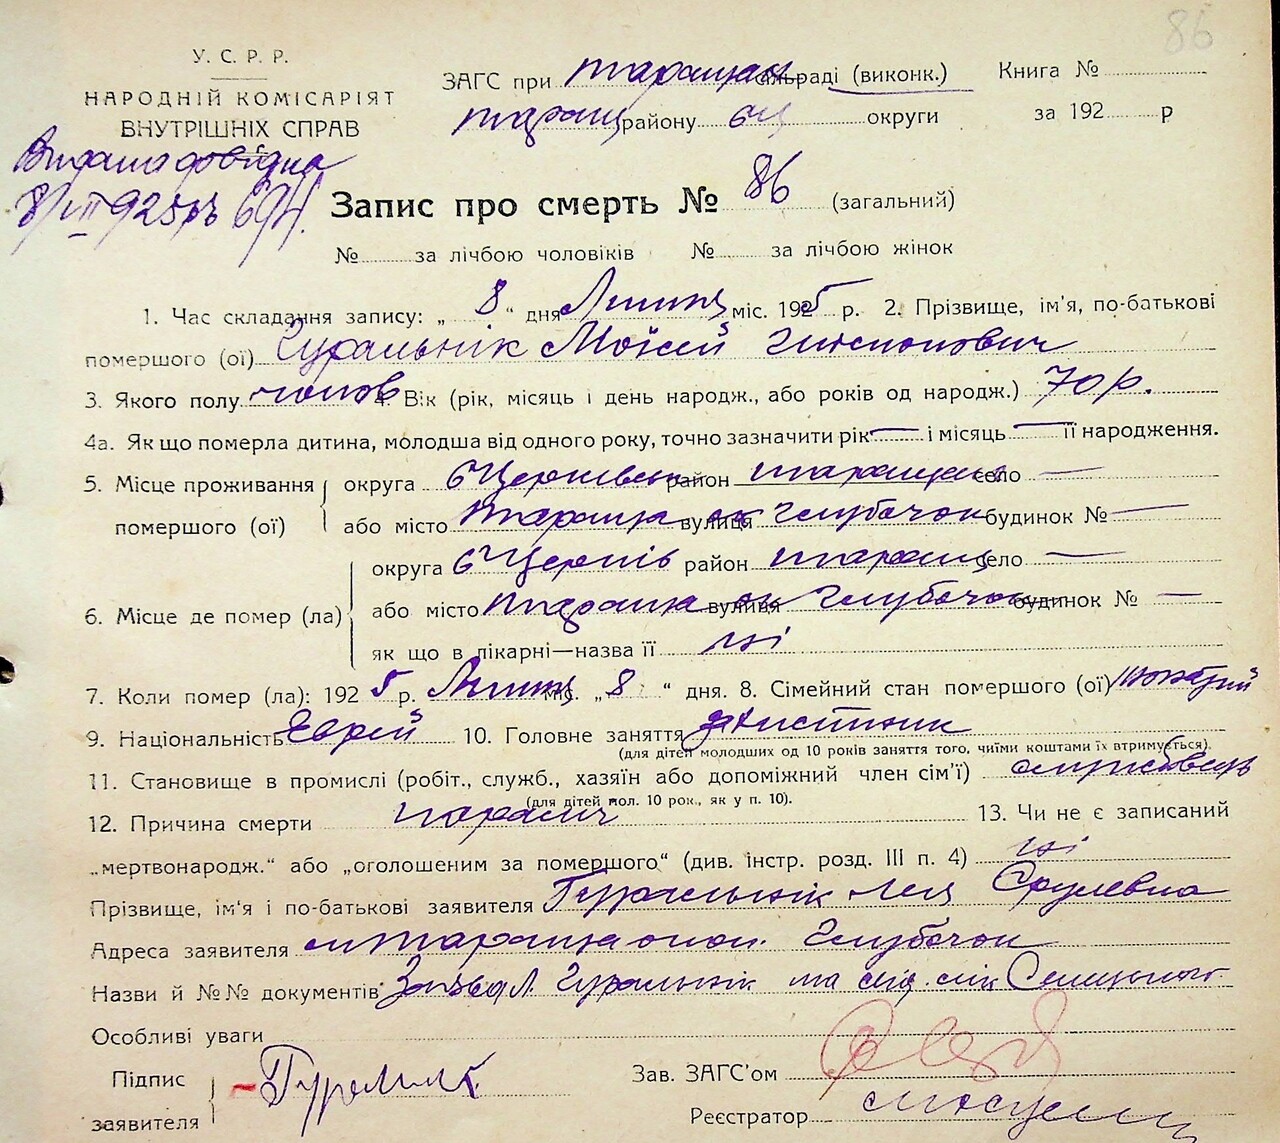 86
У. С. Р. Р.
НАРОДНІЙ КОМІСАРІЯТ
ВНУТРІШНІХ СПРАВ
ЗАГС при Таращан сільраді (виконк.) Книга №
Таращ району БЦ округи за 192 р
Видана довідка
8/VII 925 р
Запис про смерть № 86 (загальний)
№ за лічбою чоловіків № за лічбою жінок
1. Час складання запису: „ 8 “ дня Липня міс. 1925 р. 2. Прізвище, ім'я, по-батькові
помершого (ої) Гуральнік Мойсей
3. Якого полу чолов 4. Вік (рік, місяць і день народж., або років од народж.) 70 р.
4а. Як що померла дитина, молодша від одного року, точно зазначити рік — і місяць — її народження.
5. Місце проживання помершого (ої)
округа БЦерківськ район Таращанськ село —
або місто Тараща вулиця ок Глубочок будинок № —
6. Місце де помер (ла)
округа БЦерків район Таращ село —
або місто Тараща вулиця ок Глубочок будинок № —
як що в лікарні—назва її ні
7. Коли помер (ла): 1925 р. Липня міс. „ 8 “ дня. 8. Сімейний стан помершого (ої) жонатий
9. Національність Єврей 10. Головне заняття
(для дітей молодших од 10 років заняття того, чиїми коштами їх втримується).
11. Становище в промислі (робіт., служб., хазяїн або допоміжний член сім'ї) службовець
(для дітей мол. 10 рок., як у п. 10).
12. Причина смерти параліч 13. Чи не є записаний
„мертвонародж.“ або „оголошеним за помершого“ (див. інстр. розд. III п. 4) ні
Прізвище, ім'я і по-батькові заявителя Гуральнік Лея Срулевна
Адреса заявителя м Тараща окол. Глубочок
Назви й №№ документів Гуральнік та
Особливі уваги
Підпис заявителя Гуральнік
Зав. ЗАГС'ом
Реєстратор